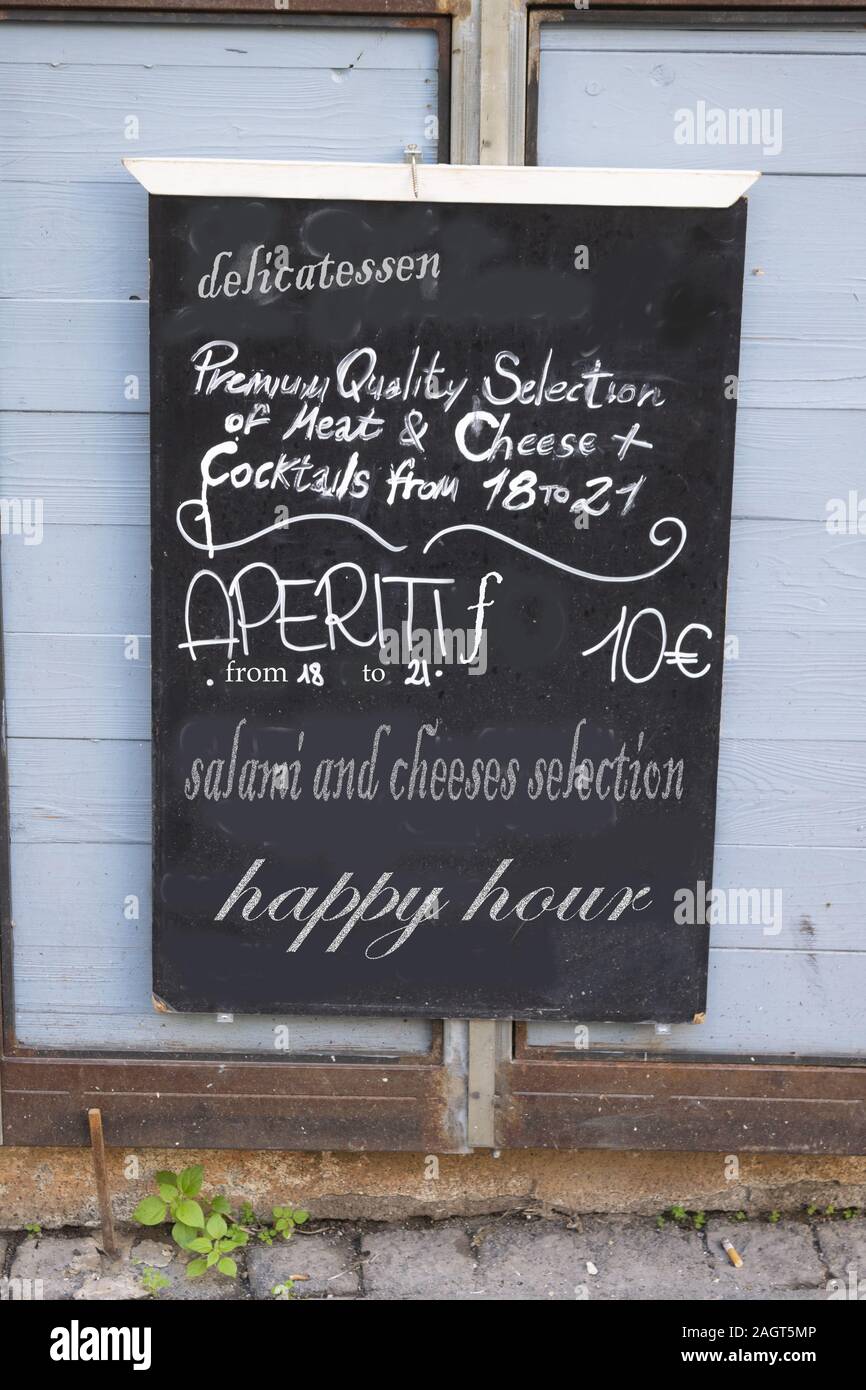 delicatessen
Premium Quality Selection
of Meat & Cheese +
Cocktails from 18 TO 21
APERITIf 10€
. from 18 to 21.
salami and cheeses selection
happy hour
alamy
Image ID: 2AGT5MP
www.alamy.com